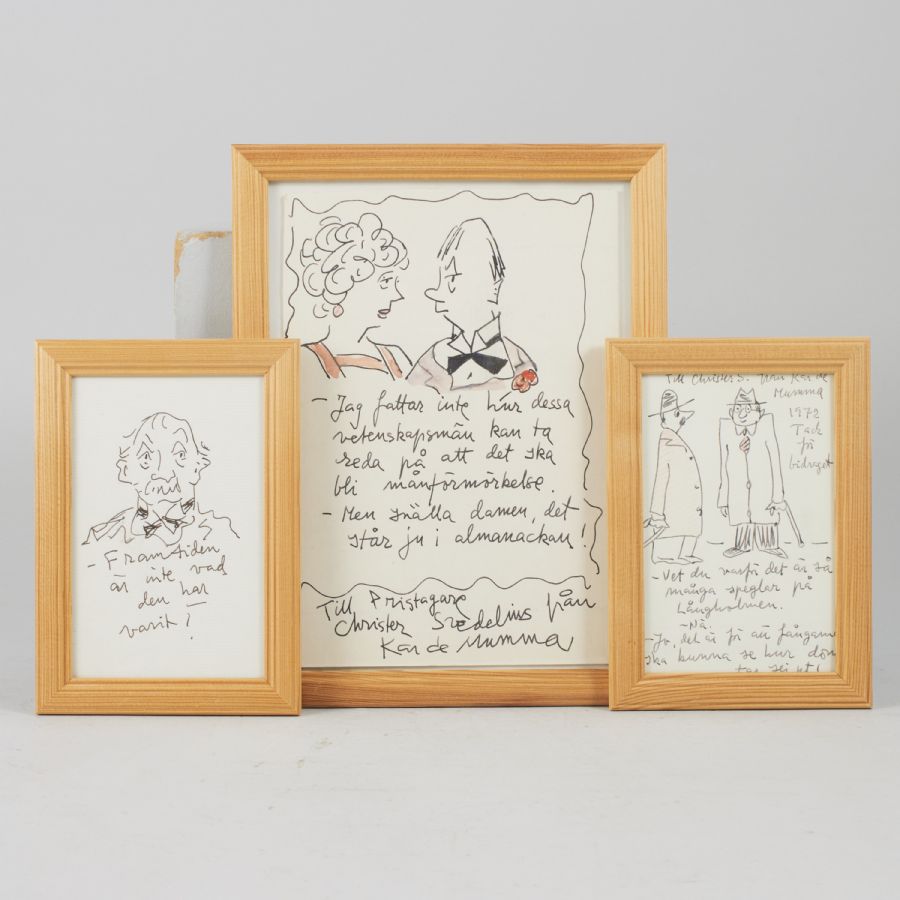 - Framtiden
är inte vad
den har
varit!
- Jag fattar inte hur dessa
vetenskapsmän kan ta
reda på att det ska
bli månförmörkelse.
- Men snälla damen, det
står ju i almanackan!
Till Pristagare
Christer Sredelius från
Kar de Mumma
Till Christer S. från Kar de
Mumma
1972
Tack
för
bidraget
- Vet du varför det är så
många speglar på
Långholmen.
- Nä.
- Jo, det är för att fångarna
ska kunna se hur dom
tar sej ut!